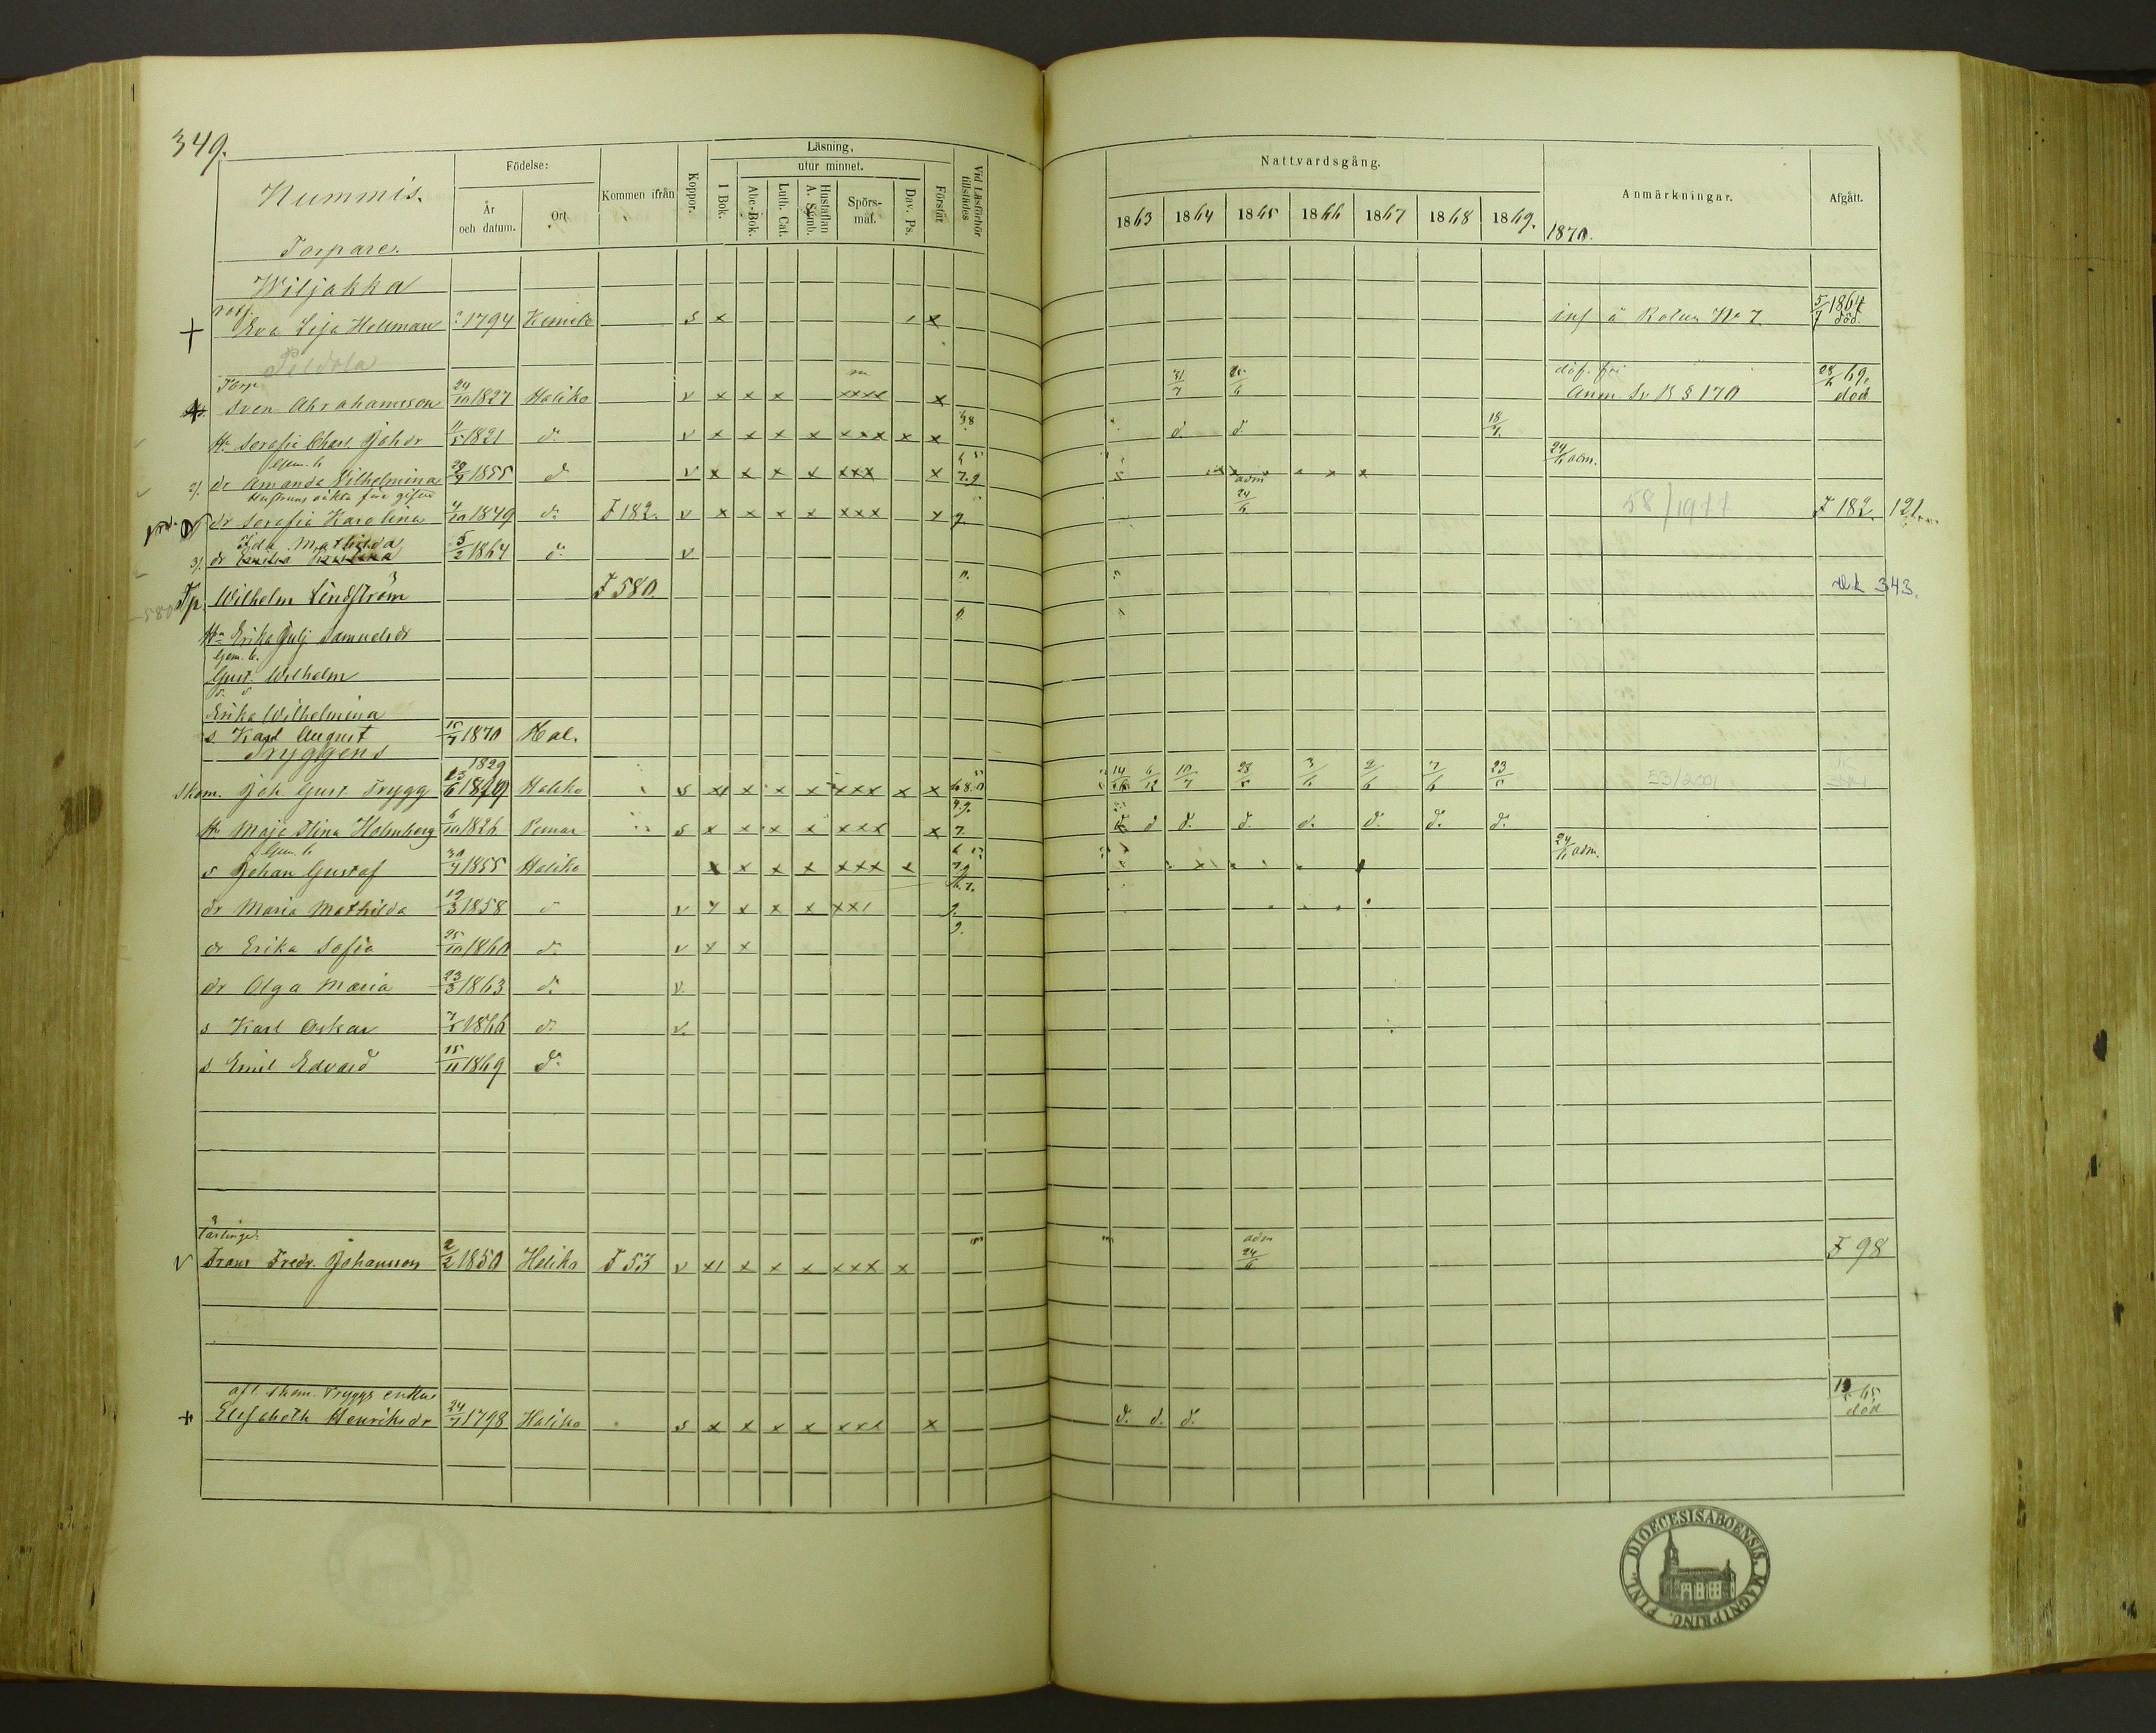 349.
Nummis.
Torpare.
Födelse:
År och datum.
Ort.
Kommen ifrån
Koppor.
Läsning,
utur minnet.
I Bok.
Abc-Bok.
Luth. Cat.
Hustaflan A. Symb.
Spörs-mål.
Dav. Ps.
Förstår
Vid Läsförhör tillstädes
Nattvardsgång.
1863 1864 1865 1866 1867 1868 1869. 1870.
Anmärkningar.
Afgått.
Wiljakka
+ Eva Lisa Hellman 1794 Kemik s x x inf å Rotun No 7 5/7 1864 död.
Peldola
Torp
Sven Abrahamsson 24/10 1827 Haliko v x x x xxxx x 31/7 Anm. Sv B § 170 28/6 69. död
H. Serafia Charl Joh dr 11/5 1821 do v x x x x xxx x x d. d. 18/7
Gem. b.
2). dr Amanda Wilhelmina 29/9 1855 d v x x x x xxx x 7.9 24/6 adm.
dr Serafia Karolina 4/10 1849 do F 182. v x x x x xxx x 9. adm 24/6 58/1977 F 182. 121
Ida Mathilda
3). dr Emilia 5/2 1864 do v
Tp. Wilhelm Lindström F 580. 343.
Hu Erika Julj Samuelsdr
Gem. b.
Gust. Wilhelm
Erika Wilhelmina
s. Karl August 15/7 1870 Hal.
Tryggens
1829
Skom. Joh. Gust. Trygg 23/6 Haliko s x x x x xxx x x 14/6 6/12 10/7 28/5 3/6 2/6 7/6 23/5 53/2001
H. Maja Stina Holmberg 6/10 1826 Pemar s x x x x xxx x 7. d d d. d. d. d. d. d.
Gem. b.
s Johan Gustaf 30/4 1855 Haliko x x x x xxx x 24/6 adm.
dr Maria Mathilda 19/3 1858 d v x x x x xxx 9.
dr Erika Sofia 25/10 1860 do v x x 9.
dr Olga Maria 23/3 1863 do v.
s Karl Oskar 1866 do v.
s. Emil Edvard 15/11 1869 do
lärlinge.
v Frans Fredr. Johansson 2/2 1850 Haliko F 53 v x x x x xxx x adm 24/6 F 98
afl. skom. Tryggs enka
+ Elisabeth Henriksdr 24/1 1798 Haliko s x x x x xxx x d. d. d. 65 död
DIOECESIS ABOENSIS. MAGNI PRINC. FINL.